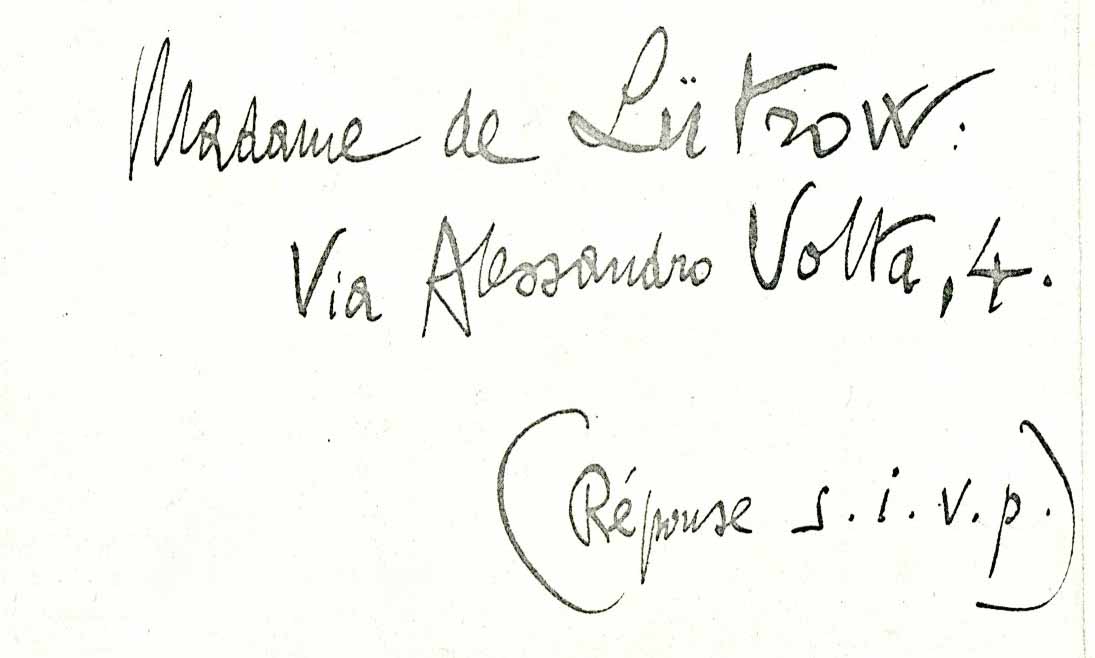 Madame de Lützow.
Via Alessandro Volta, 4.
(Réponse s.i.v.p.)